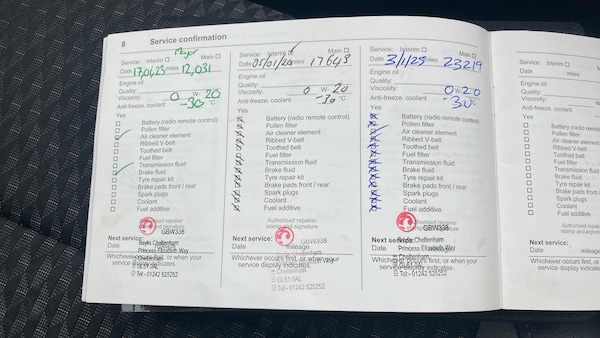 8 Service confirmation
Major
Service: Interim Main
Date 17,04,23 miles 12,031
Engine oil
Quality:
Viscosity: 0 W- 20
Anti-freeze, coolant -30 °C
Yes
Battery (radio remote control)
Pollen filter
Air cleaner element
Ribbed V-belt
Toothed belt
Fuel filter
Transmission fluid
Brake fluid
Tyre repair kit
Brake pads front / rear
Spark plugs
Coolant
Fuel additive
Authorised repairer
stamp and signature
GBW338
Next service: Baylis Cheltenham
Date Princess Elizabeth Way
Whichever occurs first, or when your
Cheltenham
service display indicates.
GL51 0AL
Tel - 01242 525252
Service: Interim Main
Date 05/01/24 miles 17643
Engine oil
Quality:
Viscosity: 0 W- 20
Anti-freeze, coolant -30 °C
Yes
Battery (radio remote control)
Pollen filter
Air cleaner element
Ribbed V-belt
Toothed belt
Fuel filter
Transmission fluid
Brake fluid
Tyre repair kit
Brake pads front / rear
Spark plugs
Coolant
Fuel additive
Authorised repairer
stamp and signature
GBW338
Next service:
Date mileage
Whichever occurs first, or when your
service display indicates.
Cheltenham
GL51 0AL
Tel - 01242 525252
Service: Interim Main
Date 3/1/25 miles 23219
Engine oil
Quality:
Viscosity: 0 W- 20
Anti-freeze, coolant -30 °C
Yes
Battery (radio remote control)
Pollen filter
Air cleaner element
Ribbed V-belt
Toothed belt
Fuel filter
Transmission fluid
Brake fluid
Tyre repair kit
Brake pads front / rear
Spark plugs
Coolant
Fuel additive
GBW338
Next service: Cheltenham
Date Princess Elizabeth Way
Whichever occurs first, or when your
Cheltenham
service display indicates.
GL51 0AL
Tel - 01242 525252
Service: Interim
Date miles
Engine oil
Quality:
Viscosity:
Anti-freeze, coolant
Yes
Battery (radio
Pollen filter
Air cleaner
Ribbed V-belt
Toothed belt
Fuel filter
Transmission
Brake fluid
Tyre repair kit
Brake pads
Spark plugs
Coolant
Fuel additive
Next service:
Date
Whichever occurs
service display